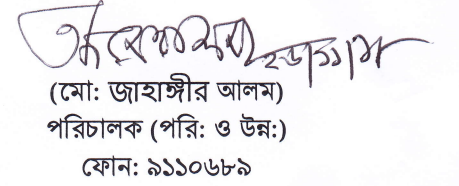 (মো: জাহাঙ্গীর আলম)
পরিচালক (পরি: ও উন্ন:)
ফোন: ৯১১০৬৮৯